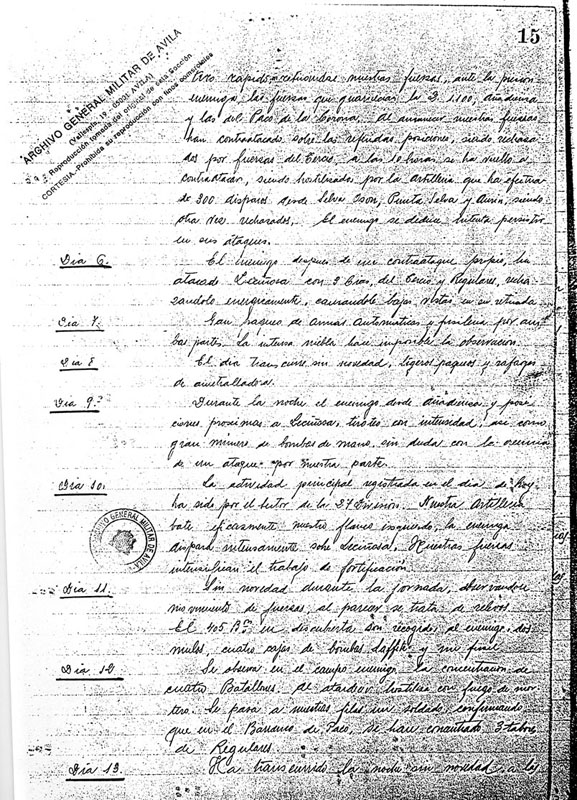 15
ARCHIVO GENERAL MILITAR DE AVILA
(Vallespín, 19 - 05001 AVILA)
Reproducción tomada del original de esta Sección
CORTESIA.-Prohibida su reproducción con fines comerciales
nuestras fuerzas, ante la presión
enemiga, las fuerzas que guarnecían la
y las del Paco de la Corona. Al amanecer nuestras fuerzas
han contraatacado sobre las referidas posiciones, siendo rechaza
dos por fuerzas del Tercio, a las 10 horas se ha vuelto a
contraatacar, siendo hostilizados por la Artillería que ha efectua
300 disparos desde Selva Punta Selva y siendo
otra vez rechazados. El enemigo se deduce intenta persistir
en sus ataques.
Dia 6. El enemigo después de un contraataque propio, ha
atacado con del Tercio y Regulares, recha
zandolo energicamente, causandole bajas vistas en su retirada
Dia 7. Gran paqueo de armas automáticas y fusileria por am
bas partes. La intensa niebla hace imposible la observación.
Dia 8 El dia transcurre sin novedad, ligeros paqueos y rafagas
de ametralladora.
Dia 9.º Durante la noche el enemigo desde y posi
ciones proximas a Leciñosa, tirotea con intensidad, asi como
gran numero de bombas de mano, sin duda con la creencia
de un ataque por nuestra parte.
Dia 10. La actividad principal registrada en el dia de hoy
ha sido por el Sector de la 27 Division. Nuestra Artilleria
bate eficazmente nuestro flanco izquierdo, la enemiga
dispara intensamente sobre Leciñosa. Nuestras fuerzas
intensifican el trabajo de fortificación.
ARCHIVO GENERAL MILITAR DE AVILA
Dia 11. Sin novedad durante la jornada, observandose
movimiento de fuerzas, al parecer se trata de relevos.
El 405 Bon en descubierta son recogidos al enemigo dos
mulos, cuatro cajas de bombas Laffite y un fusil
Dia 12 Se observa en el campo enemigo la concentracion de
cuatro Batallones, al atardecer hostiliza con fuego de mor
tero. Se pasa a nuestras filas un soldado, confirmando
que en el Barranco de Paco, se han concentrado 3 tabores
de Regulares.
Dia 13. Ha transcurrido la noche sin novedad, los